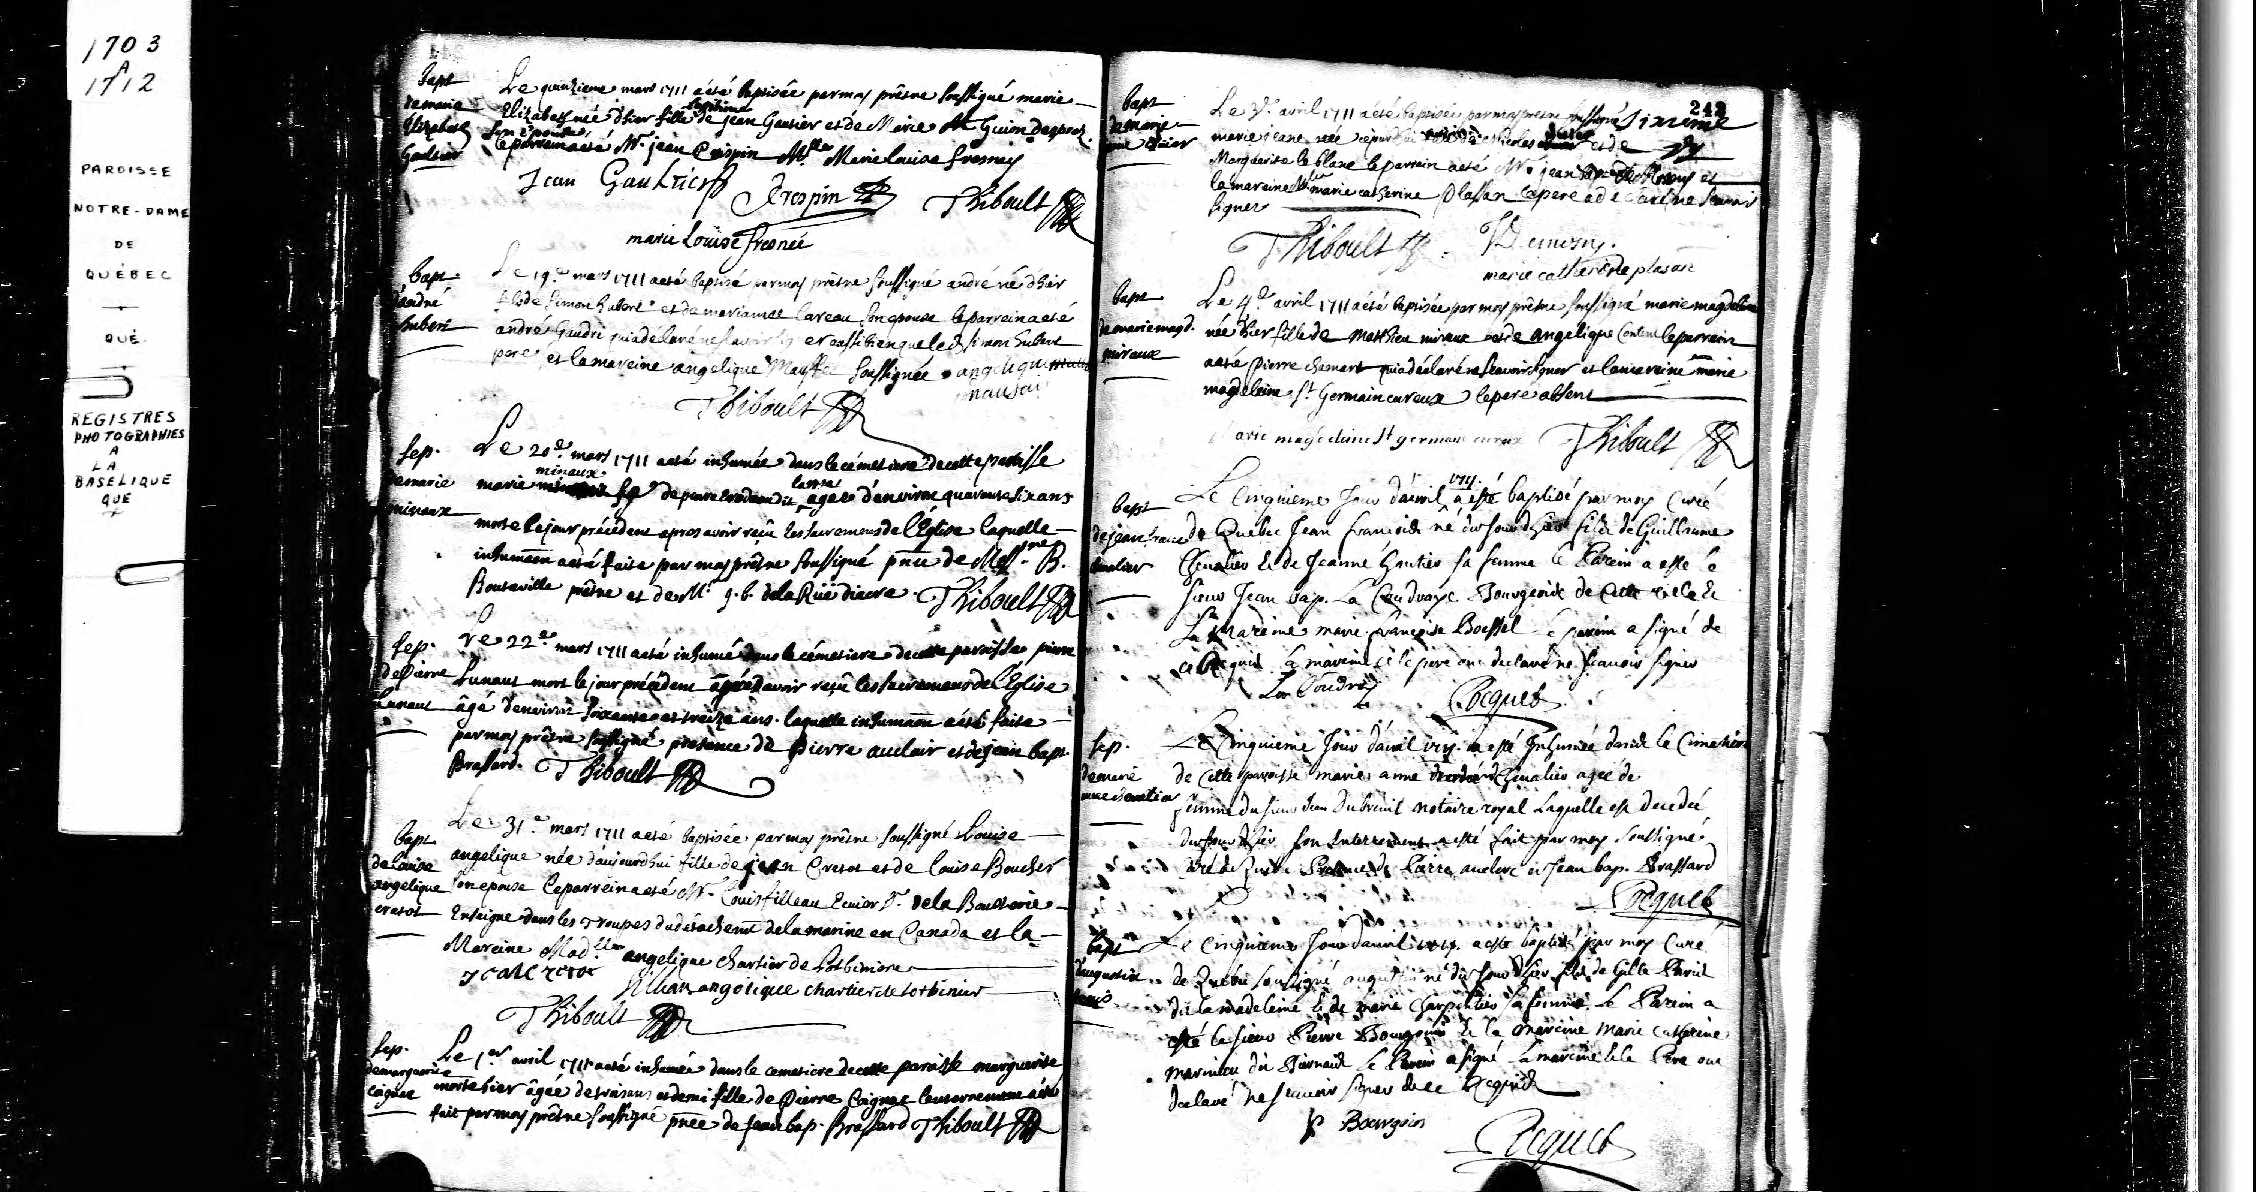 1703
A
1712
PAROISSE
NOTRE-DAME
DE
QUÉBEC
QUÉ.
REGISTRES
PHOTOGRAPHIÉS
A
LA
BASELIQUE
QUE
bapt
de marie
Elizabeth
Gautier
Le quinzieme mars 1711 a été baptisée par moy prêtre soussigné marie
Elizabeth née d'hier fille legitime de jean Gautier et de Marie
son epouse le parrein a été Mr. jean Crespin Mlle Marie Louise fresnay
Jean Gautier
Crespin
Thiboult
marie Louise fresneé
bapt.
d'andré
hubert
Le 19e mars 1711 a eté baptisé par moy prêtre soussigné andré né d'hier
fils de simon hubert et de marianne Careau son epouse le parrein a eté
andré Gaudri qui a déclaré ne sçavoir signer aussi bien que led. simon hubert
pere et la mareine angelique soussignée angelique
Thiboult
sep.
de marie
miraux
Le 20e mars 1711 a eté inhumée dans le cémetiere de cette paroisse
marie miraux fe de pierre agée d'environ quarante six ans
morte le jour précédent apres avoir reçû les sacremens de l'Église laquelle
inhumaon a eté faite par moy prêtre soussigné pnce de Messre B.
Bouteville prêtre et de Mr. j. b. de la Rüe diacre. Thiboult
sep.
de Pierre
Lunaut
Le 22e mars 1711 a eté inhumé dans le cémetiere de cette paroisse pierre
Lunaut mort le jour précédent aprés avoir reçû les sacremens de l'Eglise
âgé d'environ soixante et treize ans. laquelle inhumaon a été faite
par moy prêtre soussigné presence de Pierre auclair et de jean bapt.
Brassard. Thiboult
bapt
de Louise
angelique
cretot
Le 31e mars 1711 a eté baptisée par moy prêtre soussigné Louise
angelique née d'aujourd'hui fille de jean Cretot et de Louise Boucher
son epouse le parrein a eté Mr. Louis filleau
Enseigne dans les Troupes du détachemt de la marine en Canada et la
Mareine Madlle angelique chartier de Lotbiniere
jean cretot
angelique chartier de lotbinier
Thiboult
sep.
de marguerite
Coignac
Le 1er avril 1711 a eté inhumée dans le cemetiere de cette paroisse marguerite
morte hier âgée de trois ans et demi fille de Pierre Coignac l'enterrement a été
fait par moy prêtre soussigné pnce de Jean bap. Brassard Thiboult
242
bapt
de marie
Le 3e avril 1711 a été baptisée par moy prêtre soussigné
marie jeane née
Marguerite le blanc le parrein a eté Mr. jean et
la mareine Mlle marie catherine Plasan le pere a declaré ne scavoir
signer
Thiboult
marie catherine plasan
bapt
de marie magd.
miraux
Le 4e avril 1711 a été baptisée par moy prêtre soussigné marie magdeleine
née d'hier fille de Matthieu miraux et de angelique le parrein
a eté Pierre chamart qui a déclaré ne sçavoir signer et la mareine marie
magdeleine St Germain cureux le pere absent
marie magdeleine st germain cureux Thiboult
bapt
de jean francois
Le Cinquieme Jour d'avril 1711. a esté baptisé par moy Curé
de Quebec Jean francois né du Jour d'hier fils de Guillaume
Chevalier et de Jeanne Gautier sa femme le Parein a esté le
sieur Jean bap. La Coudraye Bourgeois de Cette ville et
La Mareine marie francoise Boessel le parein a signé de
ce Requis la mareine et le pere ont declaré ne scavoir signer
La Coudray Pocquet
sep.
de marie
anne chevalier
Le Cinquieme Jour d'avril 1711. a esté Inhumée dans le Cimetiere
de Cette paroisse marie anne Chevalier agée de
femme du sieur Jean Dubreuil notaire royal Laquelle est decedée
du Jour d'hier son Interrement a esté fait par moy soussigné
Curé de Quebec Presence de Pierre auclerc et Jean bap. Brassard
Pocquet
bapt
d'augustin
Paris
Le Cinquieme Jour d'avril 1711. a esté baptisé par moy Curé
de Quebec soussigné augustin né du Jour d'hier fils de Gille Paris
dit la madeleine et de marie Charpentier sa femme Le Parein a
esté le sieur Pierre Bourgoin et la mareine Marie Catherine
Le Parein a signé la mareine et le Pere ont
declaré ne scavoir signer de ce Requis
P Bourgoin
Pocquet